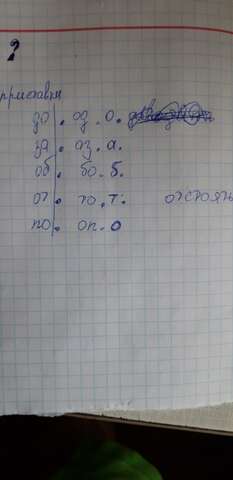 2
приставки
до. од. о.
за. аз. а.
об. бо. б.
от. то. т. отстоять
по. оп. о